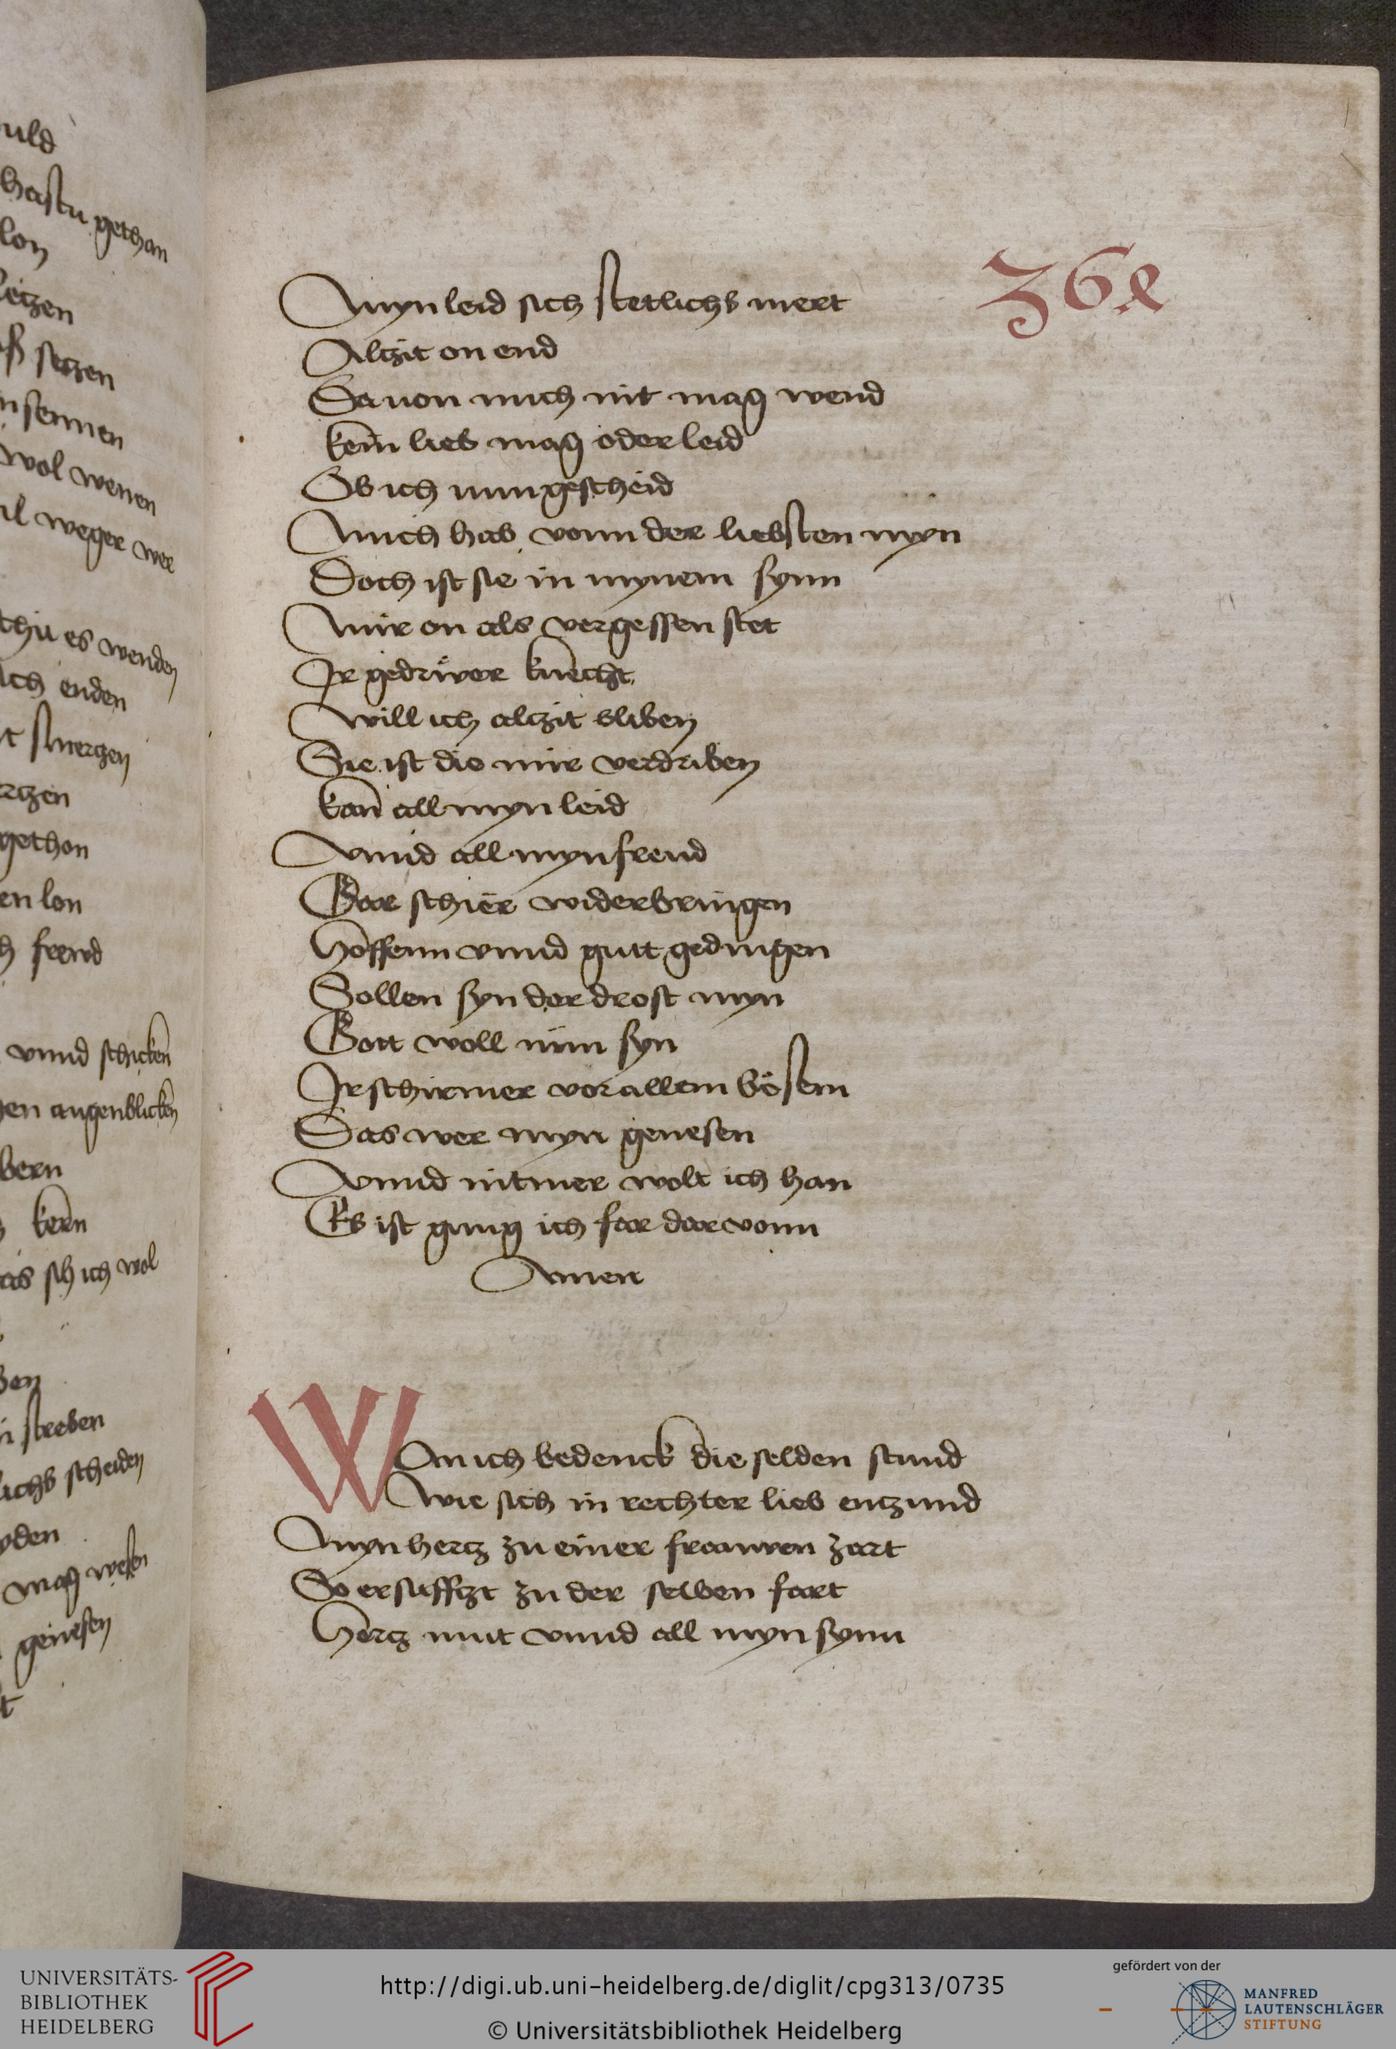 uld
hastu gethan
lon
letzen
setzen
sennen
wol wenen
weger wer
thu es wenden
ich enden
smertzen
ertzen
gethon
en lon
h freud
vnnd schicken
gen augenblicken
bern
kern
das sih ich wol
ben
streben
lichs scheiden
yden
mag wesen
genesen
t
36e
Myn leid sich stetlichs mert
Altzit on end
Da uon mich nit mag wend
kein lieb mag oder leid
Ob ich nun gescheid
Mich hab vonn der liebsten myn
Doch ist sie in mynem synn
Mir on als vergessen stet
Ir gedrüwer knecht
Will ich altzit bliben
Sie ist die mir verdriben
kan all myn leid
Vnnd all myn freud
Gar schier widerbringen
hoffenn vnnd gutt gedingen
Sollen syn der drost myn
Gott woll nun syn
Ir schirmer vor allem bösem
Das wer myn genesen
Vnnd nit mer wolt ich han
Es ist gnug ich far dar vonn
Amen
Wan ich bedenck die selden stund
Wie sich in rechter lieb entzund
Myn hertz zu einer frauwen zart
So ersufftzt zu der selben fart
hertz mut vnnd all myn synn
UNIVERSITÄTS-
BIBLIOTHEK
HEIDELBERG
http://digi.ub.uni-heidelberg.de/diglit/cpg313/0735
© Universitätsbibliothek Heidelberg
gefördert von der
MANFRED
LAUTENSCHLÄGER
STIFTUNG